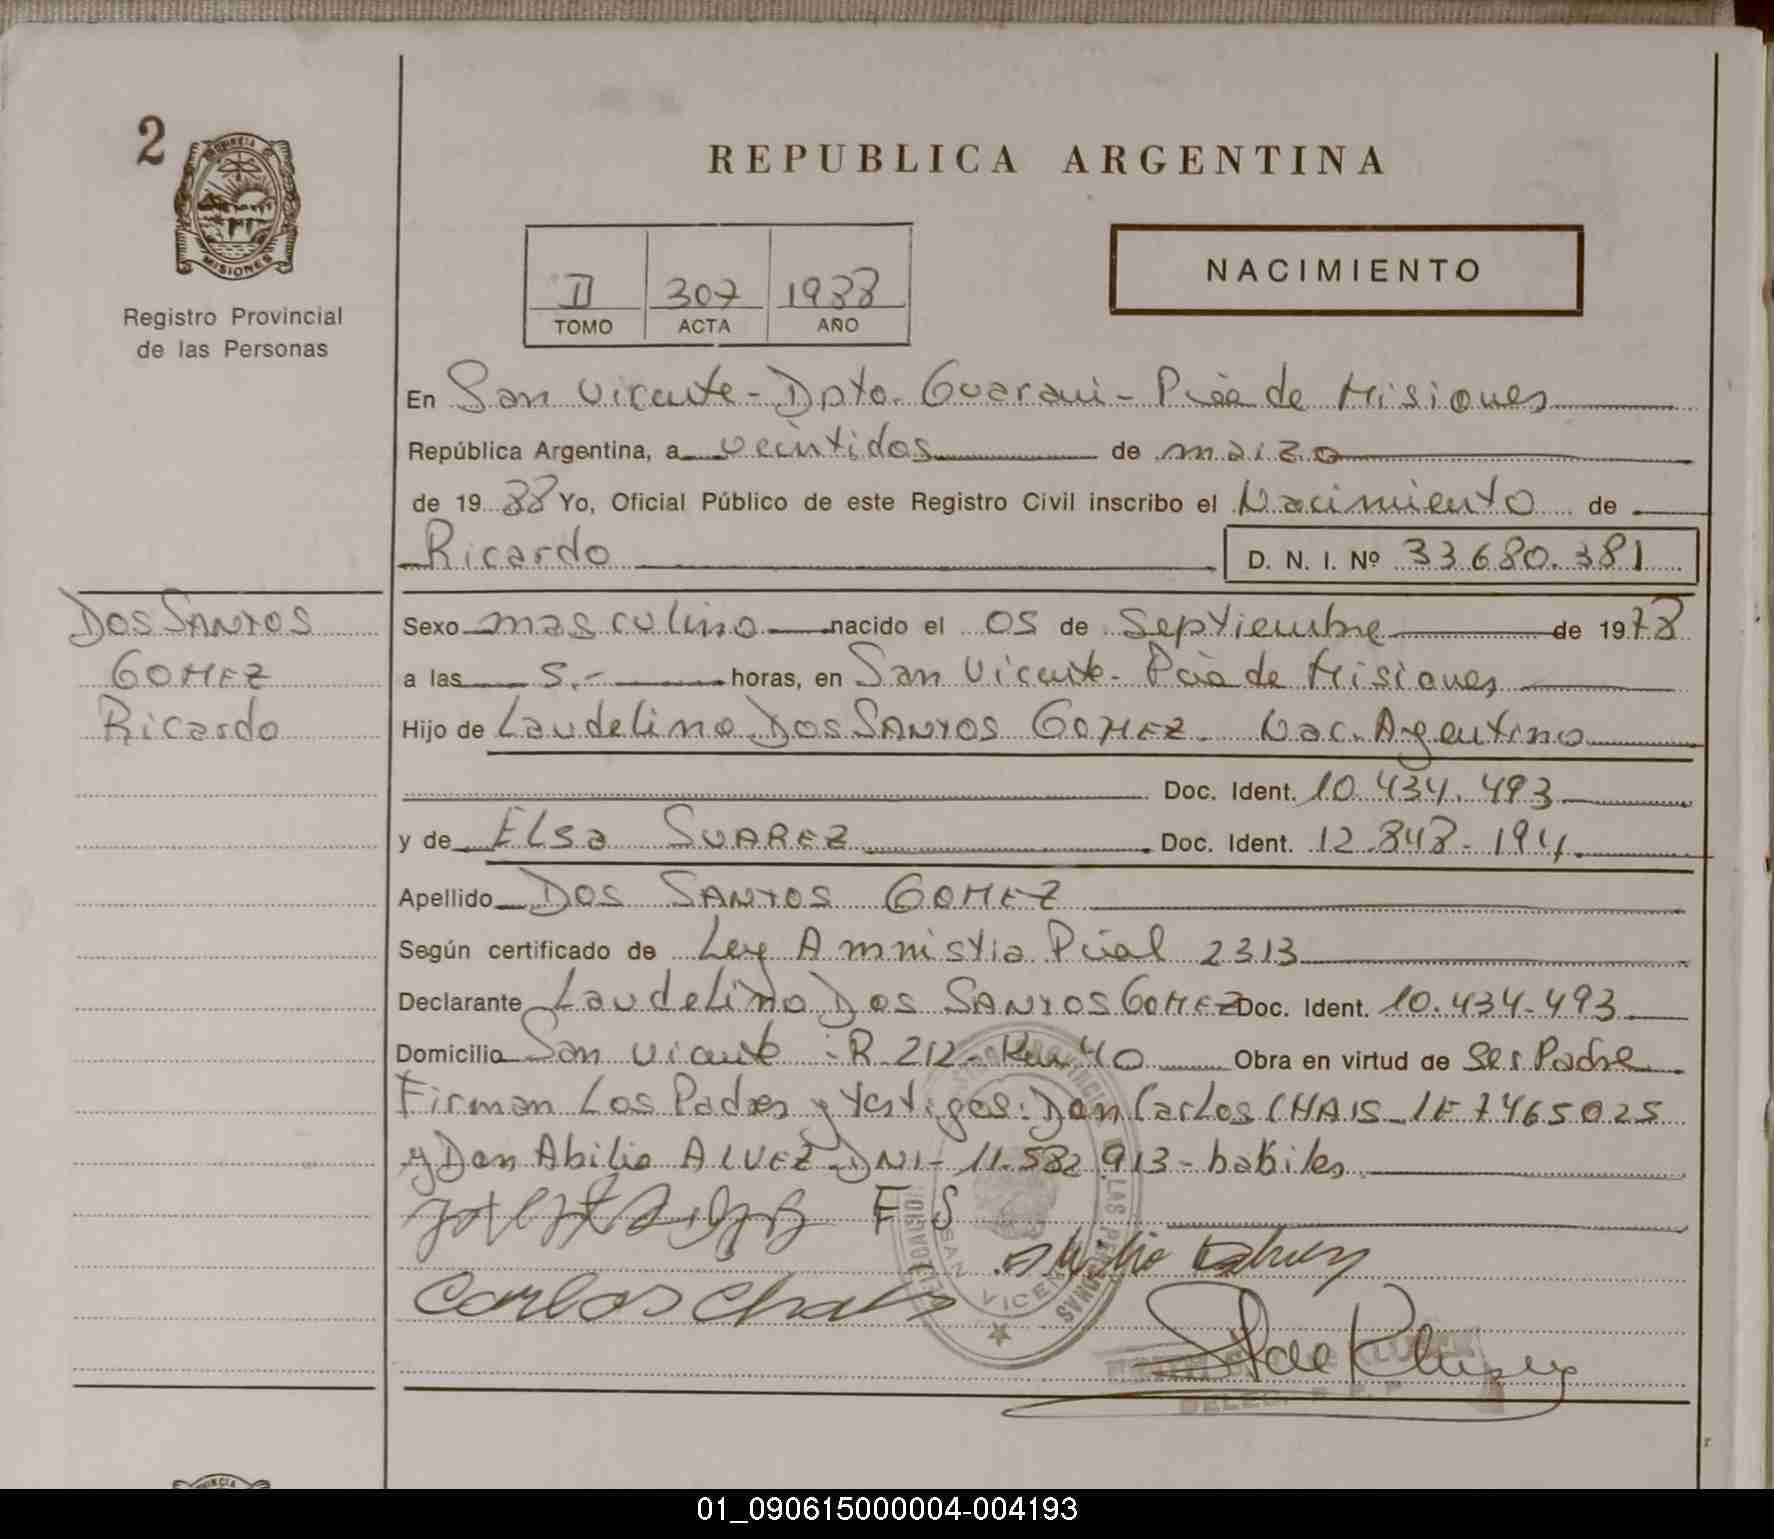 2
PROVINCIA DE
MISIONES
Registro Provincial
de las Personas
REPUBLICA ARGENTINA
NACIMIENTO
II 307 1988
TOMO ACTA AÑO
En San Vicente - Dpto. Guarani - Pcia de Misiones
República Argentina, a veintidos de marzo
de 1988 Yo, Oficial Público de este Registro Civil inscribo el Nacimiento de
Ricardo D. N. I. Nº 33.680.381
DOS SANTOS
GOMEZ
Ricardo
Sexo masculino nacido el 05 de Septiembre de 1978
a las 5.- horas, en San Vicente - Pcia de Misiones
Hijo de Laudelino DOS SANTOS GOMEZ - Nac. Argentino
Doc. Ident. 10.434.493
y de Elsa SUAREZ Doc. Ident. 12.848.194
Apellido DOS SANTOS GOMEZ
Según certificado de Ley Amnistia Pcial 2313
Declarante Laudelino DOS SANTOS GOMEZ Doc. Ident. 10.434.493
Domicilio San Vicente - R 212 - Km 40 Obra en virtud de Ser Padre
Firman Los Padres y testigos: Don Carlos CHAIS - LE 7465025
y Don Abilio ALVEZ - DNI - 11.582.913 - habiles
E S
Carlos Chais
SAN VICENTE
DELEG.
01_090615000004-004193